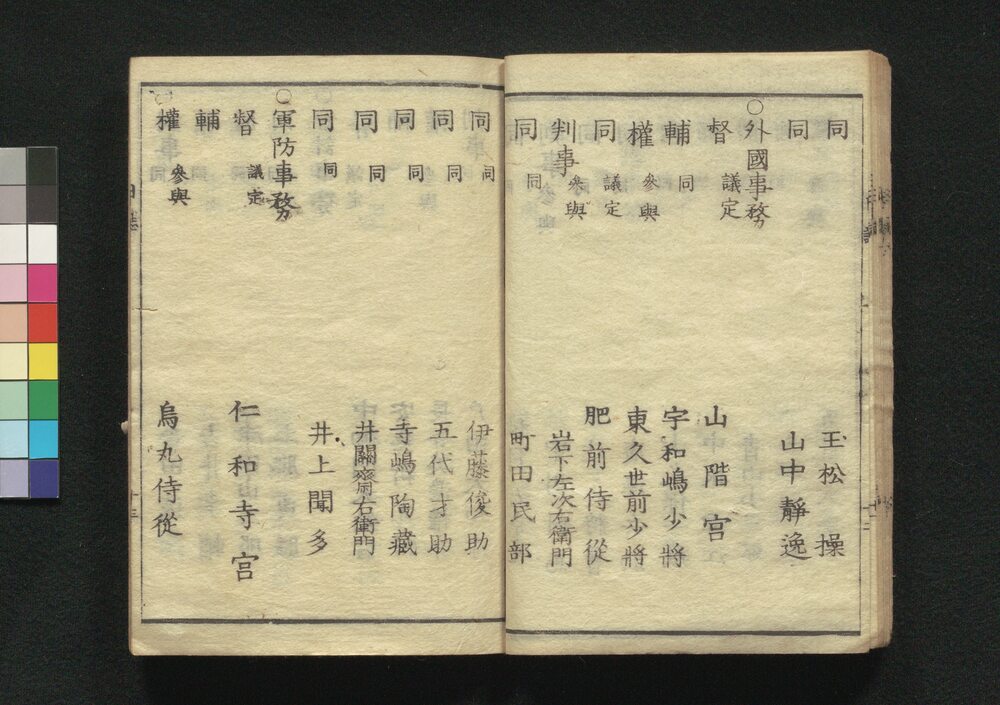 同 玉松操
同 山中靜逸
○外國事務
督 議定 山階宮
輔 同 宇和嶋少將
權 參與 東久世前少將
同 議定 肥前侍從
判事 參與 岩下左次右衛門
同 同 町田民部
同 同 伊藤俊助
同 同 五代才助
同 同 寺嶋陶藏
同 同 井關齋右衛門
同 同 井上聞多
○軍防事務
督 議定 仁和寺宮
輔
權 參與 烏丸侍從